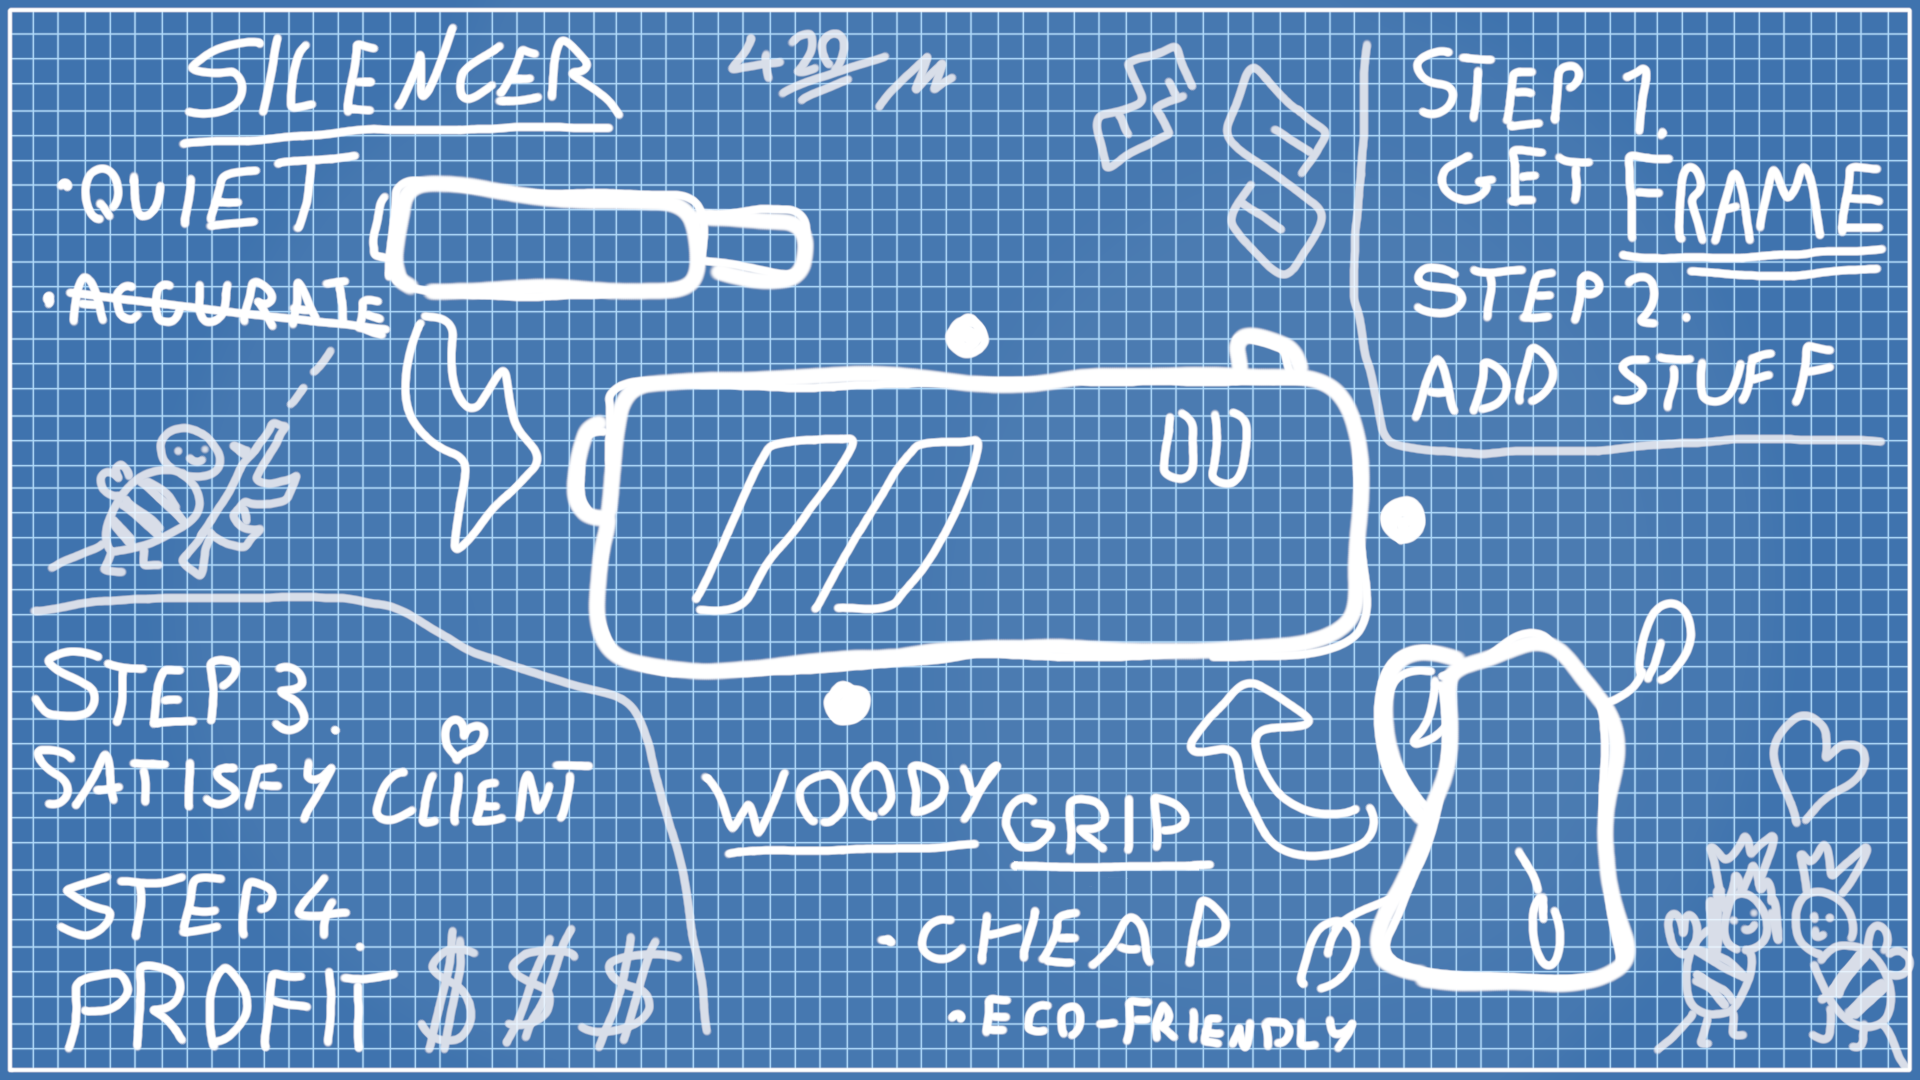 SILENCER
·QUIET
·ACCURATE
420/M
STEP 1.
GET FRAME
STEP 2.
ADD STUFF
STEP 3.
SATISFY CLIENT
STEP 4.
PROFIT $$$
WOODY GRIP
-CHEAP
-ECO-FRIENDLY